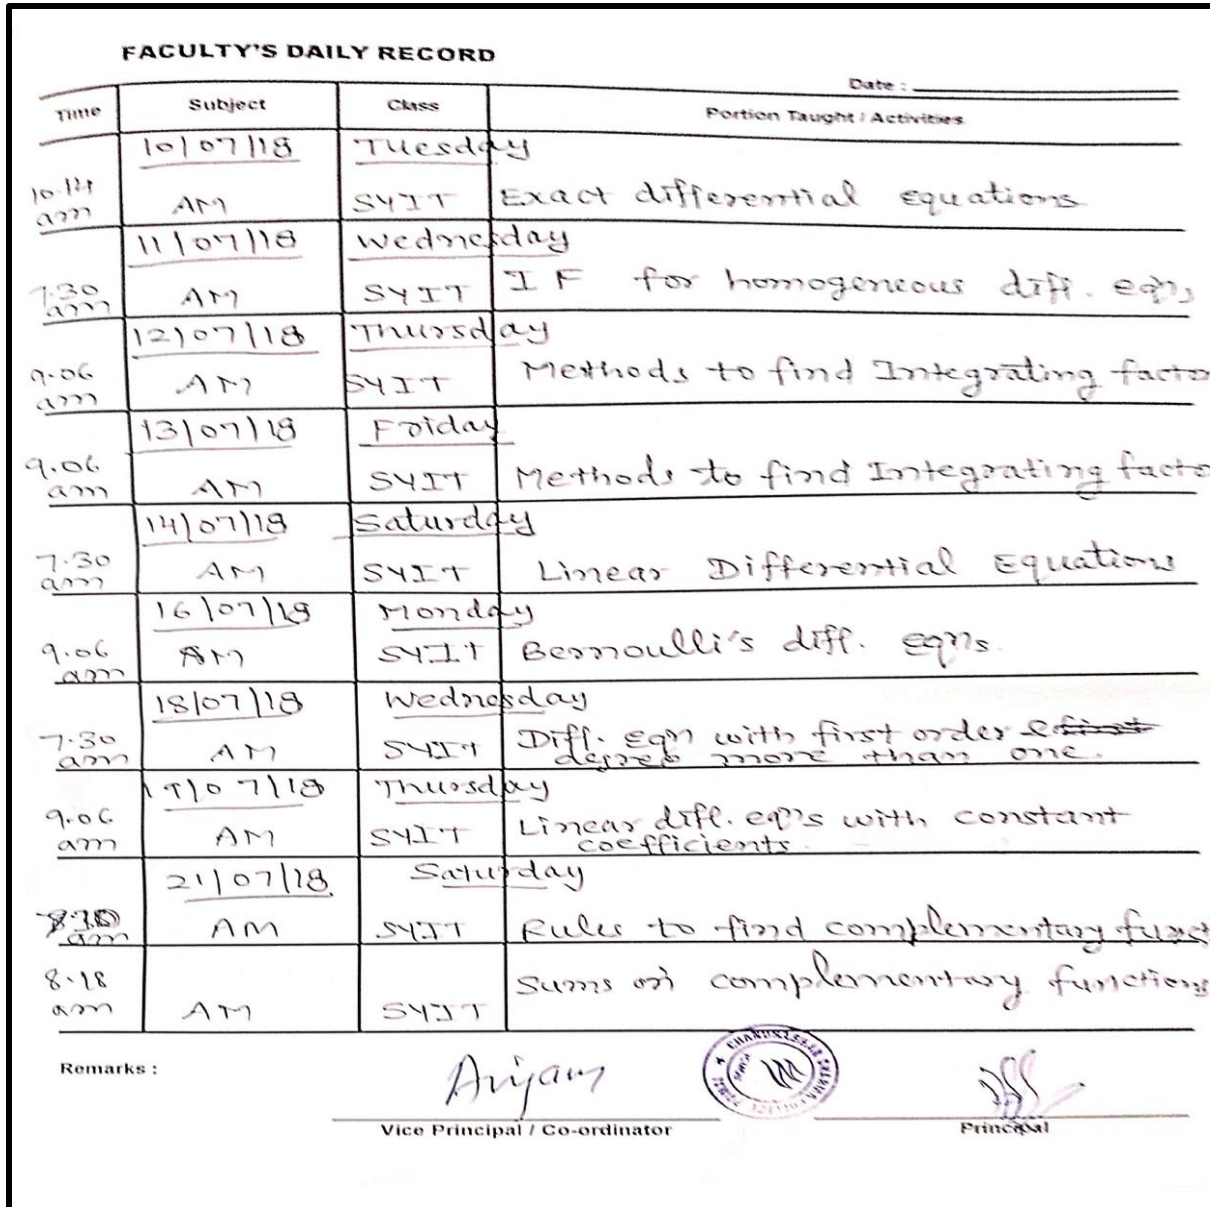 FACULTY'S DAILY RECORD
Date :
Time Subject Class Portion Taught / Activities
10/07/18 Tuesday
10.14 am AM SYIT Exact differential equations.
11/07/18 Wednesday
7.30 am AM SYIT IF for homogeneous diff. eqns
12/07/18 Thursday
9.06 am AM SYIT Methods to find Integrating facto
13/07/18 Friday
9.06 am AM SYIT Methods to find Integrating facto
14/07/18 Saturday
7.30 am AM SYIT Linear Differential Equations
16/07/18 Monday
9.06 am AM SYIT Bernoulli's diff. eqns.
18/07/18 Wednesday
7.30 am AM SYIT Diff. eqn with first order &
degree more than one.
19/07/18 Thursday
9.06 am AM SYIT Linear diff. eqns with constant
coefficients.
21/07/18 Saturday
am AM SYIT Rules to find complementary funct
8.18 am AM SYIT Sums on complementary functions
Remarks :
Vice Principal / Co-ordinator Principal